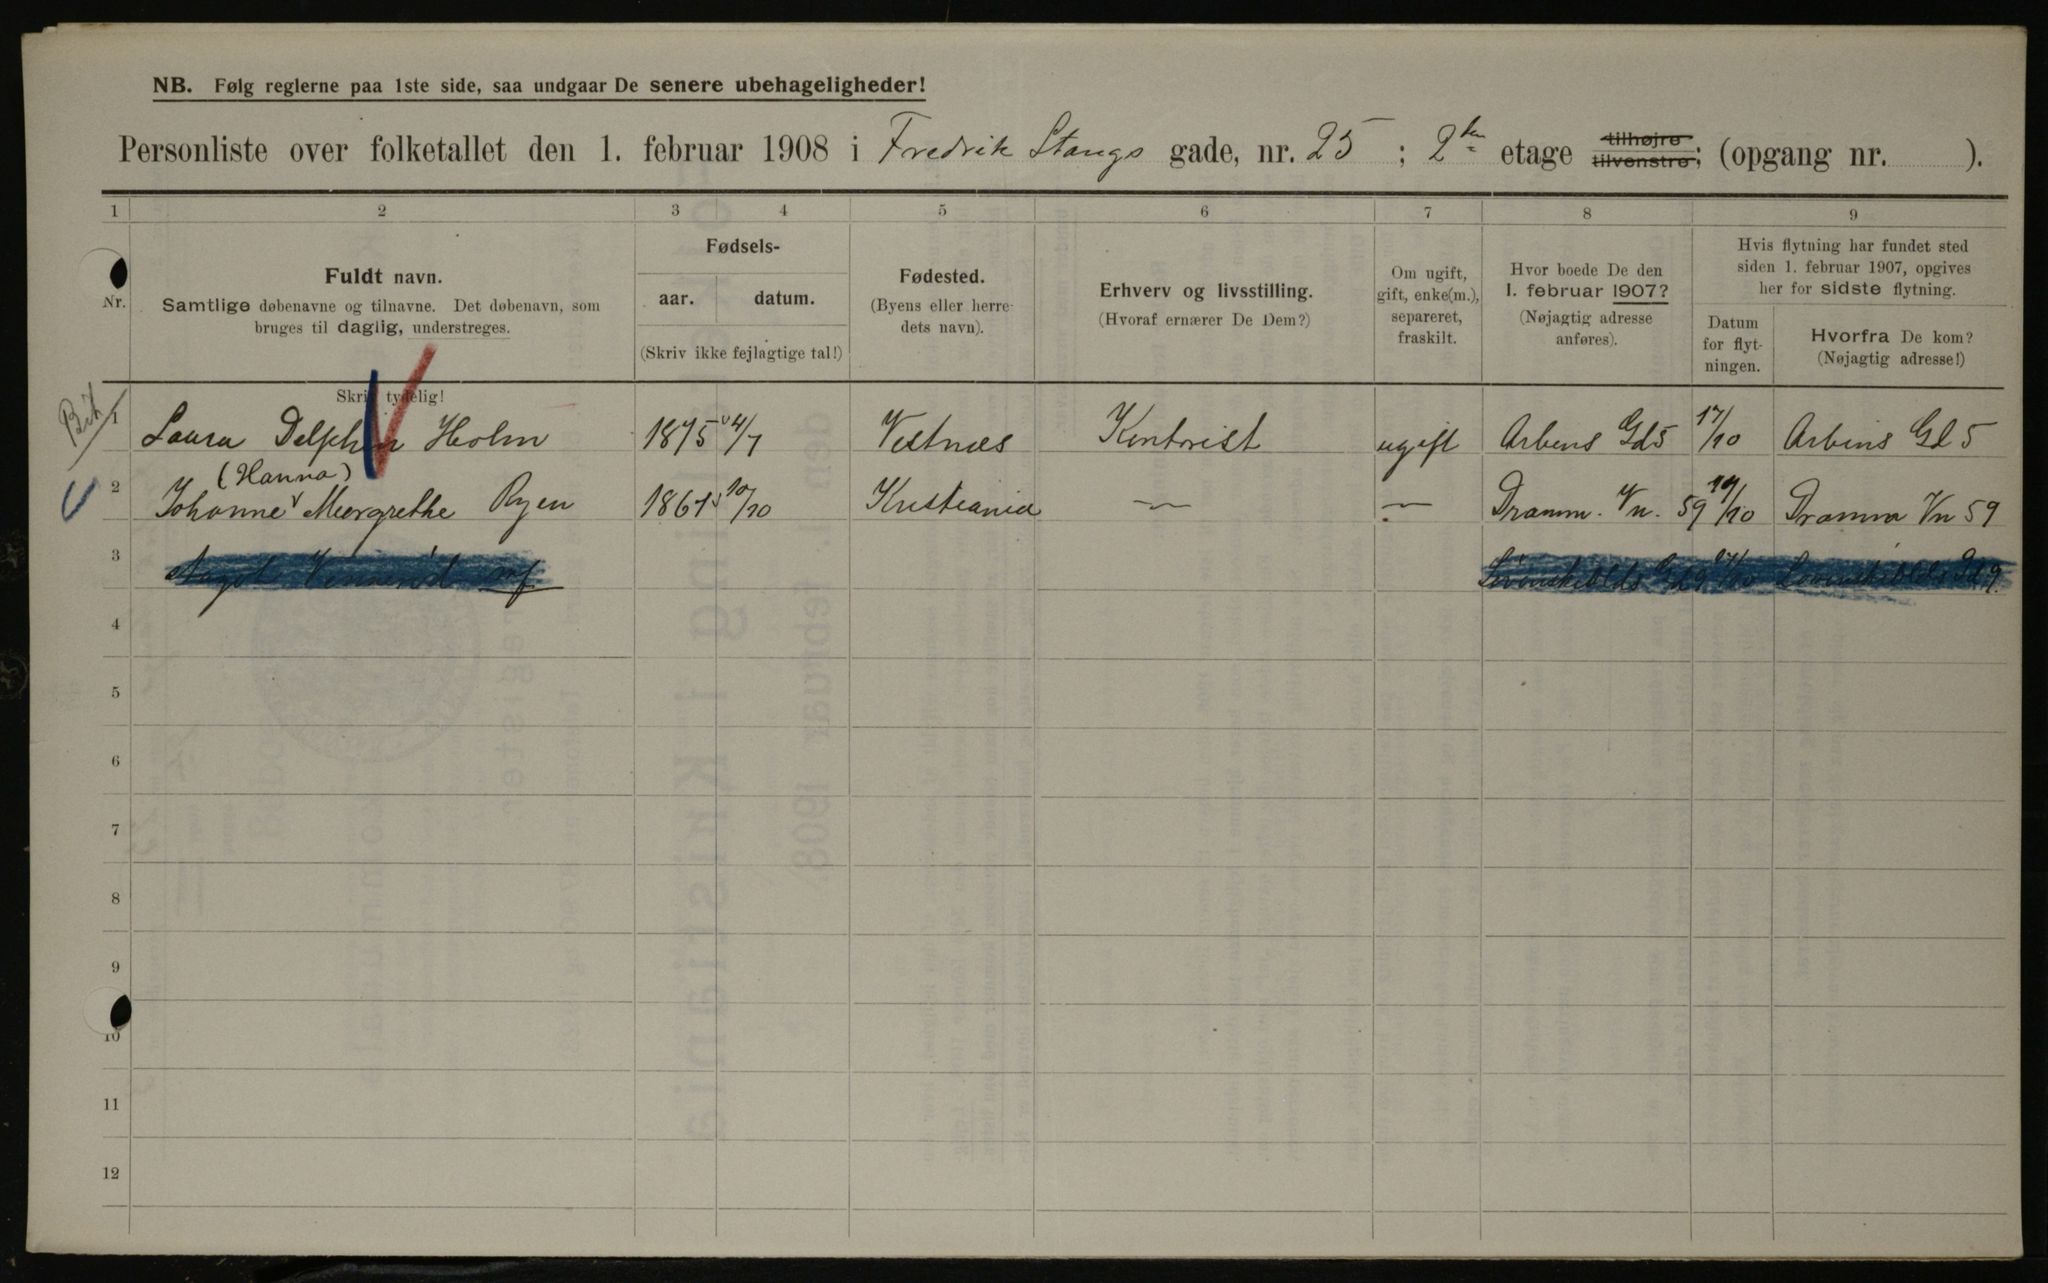 NB. Følg reglerne paa 1ste side, saa undgaar De senere ubehageligheder!
Personliste over folketallet den 1. februar 1908 i Fredrik Stangs gade, nr. 25 ; 2den etage tilhøjre tilvenstre; (opgang nr. ).
1 2 3 4 5 6 7 8 9
Nr.
Fuldt navn.
Samtlige døbenavne og tilnavne. Det døbenavn, som
bruges til daglig, understreges.
Fødsels-
aar. datum.
(Skriv ikke fejlagtige tal!)
Fødested.
(Byens eller herre-
dets navn).
Erhverv og livsstilling.
(Hvoraf ernærer De Dem?)
Om ugift,
gift, enke(m.),
separeret,
fraskilt.
Hvor boede De den
1. februar 1907?
(Nøjagtig adresse
anføres).
Hvis flytning har fundet sted
siden 1. februar 1907, opgives
her for sidste flytning.
Datum
for flyt-
ningen.
Hvorfra De kom?
(Nøjagtig adresse!)
Skriv tydelig!
1 Laura Delphin Holm 1875 4/7 Vestnæs Kontorist ugift Arbens Gd 5 17/10 Arbins Gd 5
(Hanna)
2 Johanne Margrethe Ryen 1861 10/10 Kristiania — — Dramm. Vn. 59 /10 Dramm Vn 59
3 Aagot Løvenskiolds Gd 9 /10 Løvenskiolds Gd 9.
4
5
6
7
8
9
10
11
12